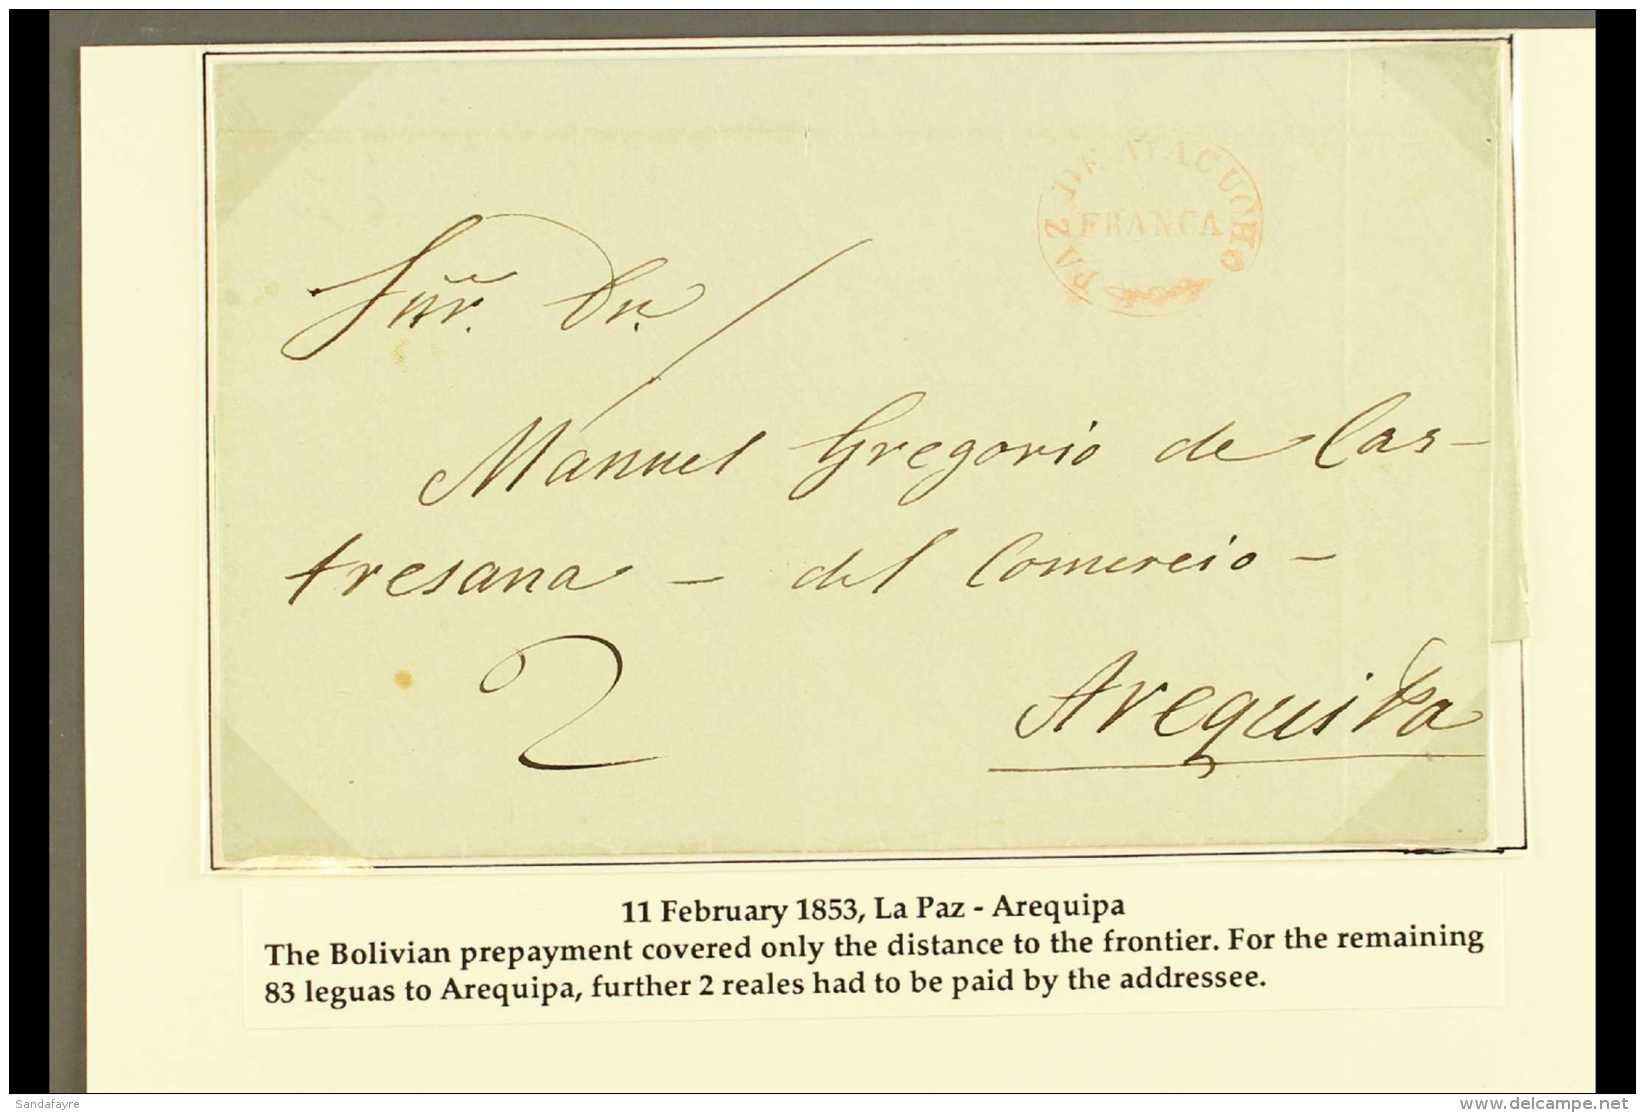 PAZ DE AYACUCHO
FRANCA
Sñr. Dn.
Manuel Gregorio de Cas-
tresana - del Comercio -
2
Arequipa
11 February 1853, La Paz - Arequipa
The Bolivian prepayment covered only the distance to the frontier. For the remaining
83 leguas to Arequipa, further 2 reales had to be paid by the addressee.
Sandafayre
delcampe.net